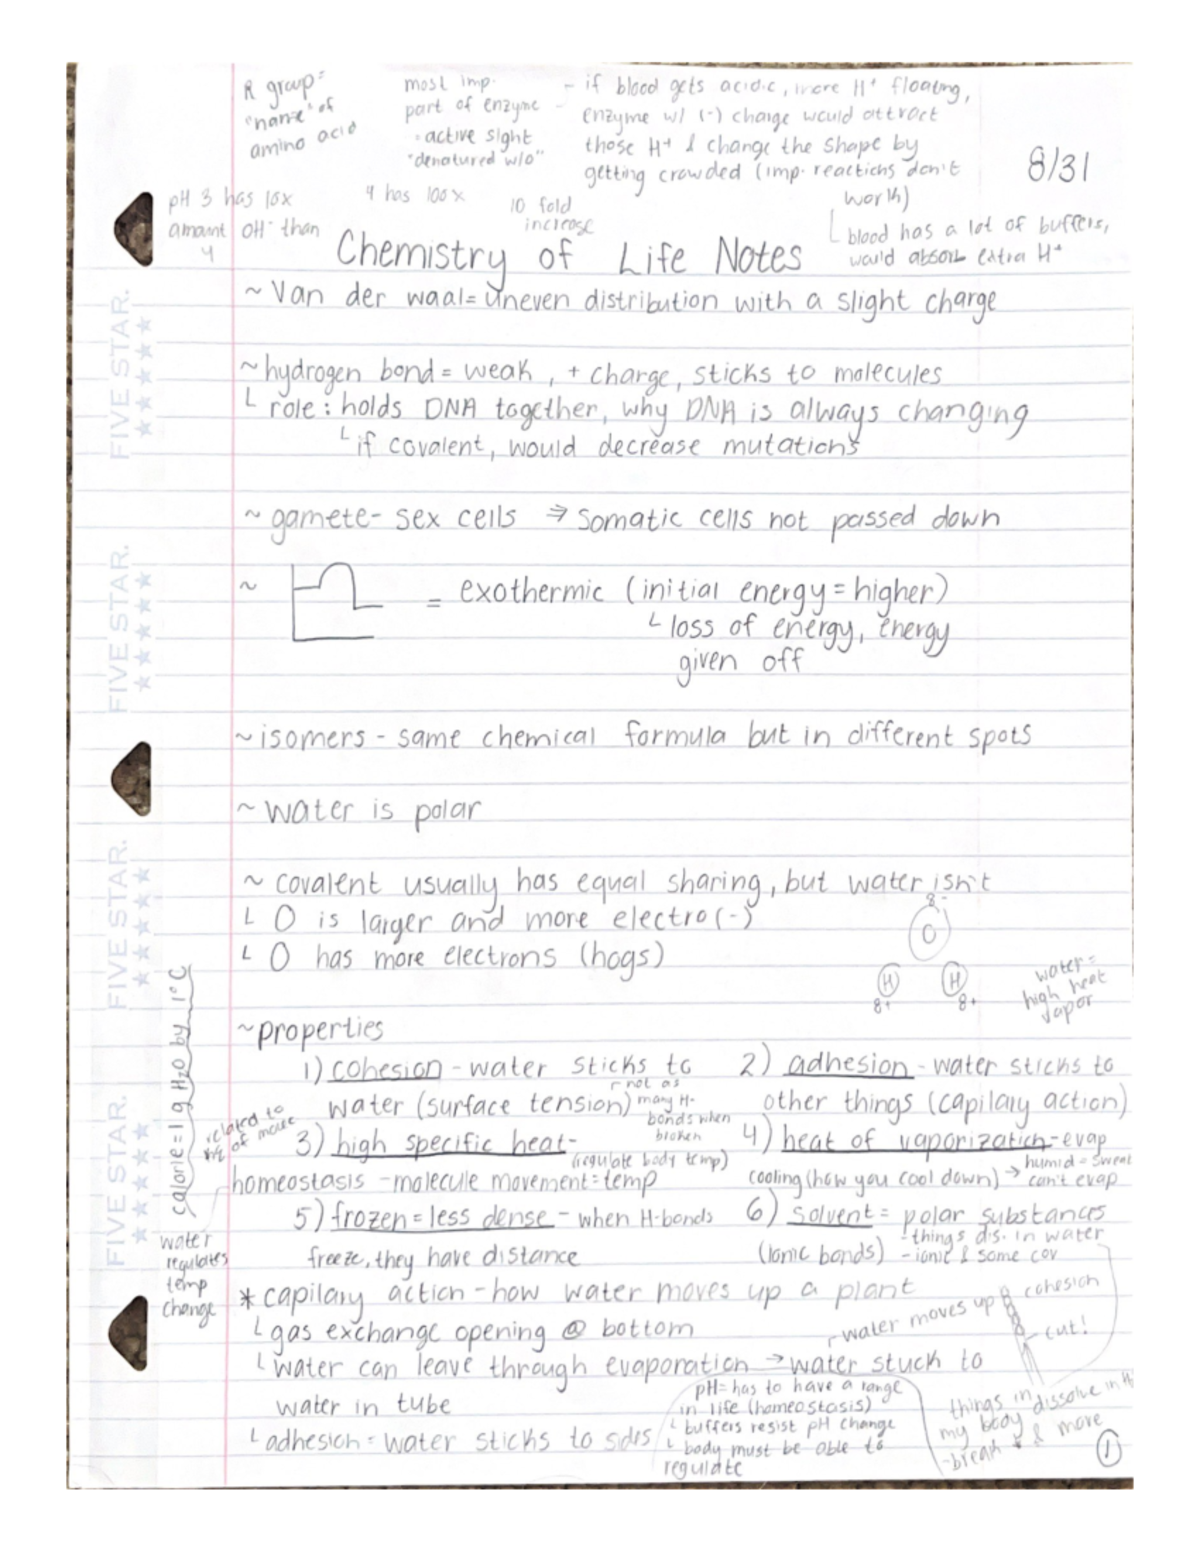 R group=
"name" of
amino acid
most imp.
part of enzyme
- active sight
"denatured w/o"
- if blood gets acidic, more H+ floating,
enzyme w/ (-) charge would attract
those H+ & change the shape by
getting crowded (imp. reactions don't
work)
└ blood has a lot of buffers,
would absorb extra H+
8/31
pH 3 has 10x
amount OH- than
4
4 has 100x
10 fold
increase
Chemistry of Life Notes
~ Van der waal= uneven distribution with a slight charge
~ hydrogen bond = weak, + charge, sticks to molecules
└ role: holds DNA together, why DNA is always changing
└ if covalent, would decrease mutations
~ gamete- sex cells ⇒ somatic cells not passed down
~ = exothermic (initial energy = higher)
└ loss of energy, energy
given off
~ isomers - same chemical formula but in different spots
~ water is polar
~ covalent usually has equal sharing, but water isn't
└ O is larger and more electro(-)
└ O has more electrons (hogs)
8-
O
H H
8+ 8+
water =
high heat
vapor
~properties
1) cohesion - water sticks to
water (surface tension)
not as
many H-
bonds when
broken
2) adhesion - water sticks to
other things (capilary action)
related to
of more
3) high specific heat-
(regulate body temp)
homeostasis - molecule movement = temp
4) heat of vaporization-evap
cooling (how you cool down) → humid = sweat
can't evap
5) frozen = less dense - when H-bonds
freeze, they have distance
6) solvent = polar substances
(ionic bonds)
-things dis. in water
- ionic & some cov
calorie = 1 g H2O by 1°C
water
regulates
temp
change
* capilary action - how water moves up a plant
└ gas exchange opening @ bottom
└ water can leave through evaporation → water stuck to
water in tube
└ adhesion = water sticks to sides
water moves up
cohesion
cut!
pH= has to have a range
in life (homeostasis)
└ buffers resist pH change
└ body must be able to
regulate
things in dissolve in
my body & more
-break
1
FIVE STAR.
FIVE STAR.
FIVE STAR.
FIVE STAR.